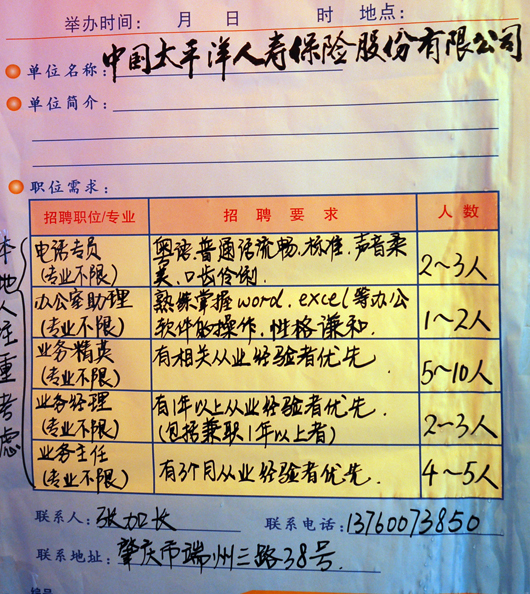 举办时间： 月 日 时 地点：
单位名称：中国太平洋人寿保险股份有限公司
单位简介：
职位需求：
招聘职位/专业 招聘要求 人数
电话专员
(专业不限)
粤语、普通话流畅、标准，声音柔
美，口齿伶俐
2～3人
办公室助理
(专业不限)
熟练掌握word、excel等办公
软件的操作，性格谦和
1～2人
业务精英
(专业不限)
有相关从业经验者优先
5～10人
业务经理
(专业不限)
有1年以上从业经验者优先
(包括兼职1年以上者)
2～3人
业务主任
(专业不限)
有3个月从业经验者优先
4～5人
本地人注重考虑
联系人：张加长 联系电话：13760073850
联系地址：肇庆市端州三路38号